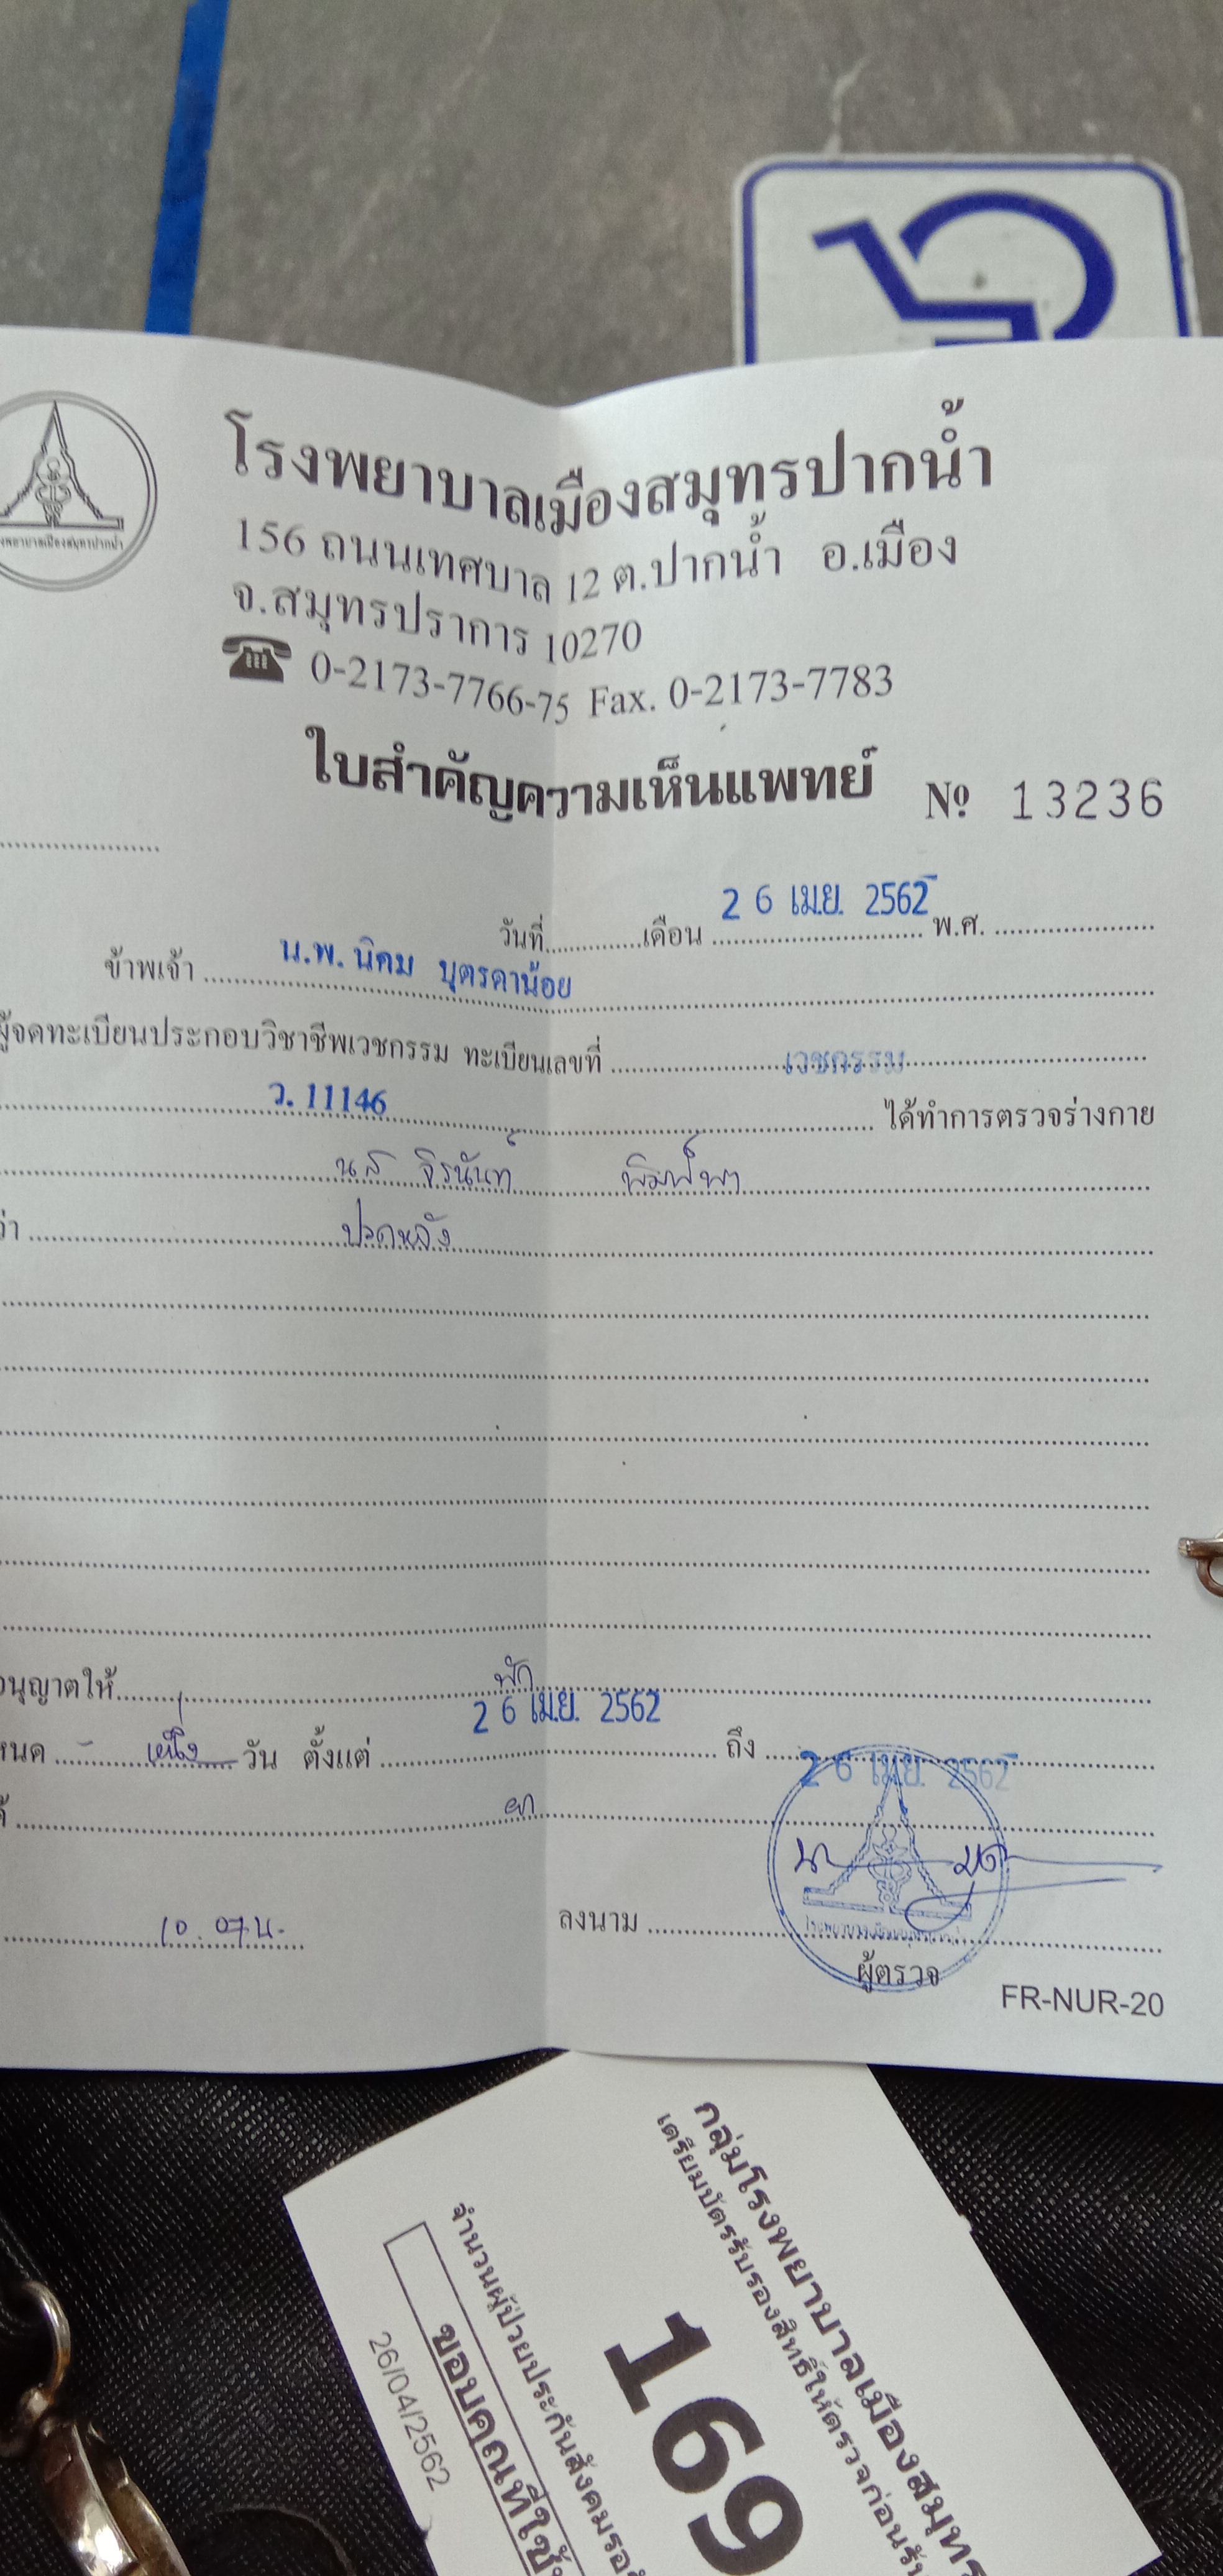 โรงพยาบาลเมืองสมุทรปากน้ำ
156 ถนนเทศบาล 12 ต.ปากน้ำ อ.เมือง
จ.สมุทรปราการ 10270
0-2173-7766-75 Fax. 0-2173-7783
ใบสำคัญความเห็นแพทย์ № 13236
วันที่ เดือน 26 เม.ย. 2562 พ.ศ.
ข้าพเจ้า น.พ. นิคม บุตรดาน้อย
ผู้จดทะเบียนประกอบวิชาชีพเวชกรรม ทะเบียนเลขที่ เวชกรรม
ว. 11146 ได้ทำการตรวจร่างกาย
น.ส จิรนันท์ พิมพ์พา
ว่า ปวดหลัง
อนุญาตให้ พัก
หนด หนึ่ง วัน ตั้งแต่ 26 เม.ย. 2562 ถึง 26 เม.ย. 2562
ยา
10.07 น. ลงนาม
ผู้ตรวจ
FR-NUR-20
กลุ่มโรงพยาบาลเมืองสมุทร
เตรียมบัตรรับรองสิทธิ์ให้ตรวจก่อนรับ
169
จำนวนผู้ป่วยประกันสังคมรอ
ขอบคุณที่ใช้
26/04/2562